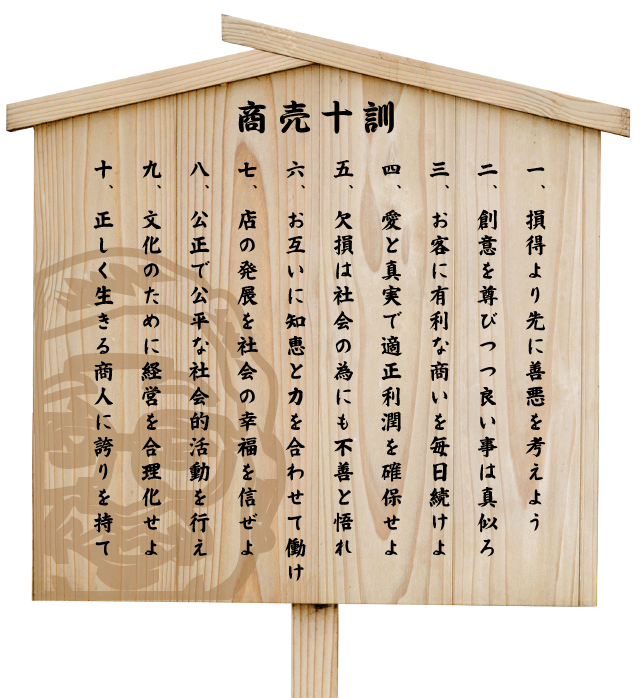 商売十訓
一、損得より先に善悪を考えよう
二、創意を尊びつつ良い事は真似ろ
三、お客に有利な商いを毎日続けよ
四、愛と真実で適正利潤を確保せよ
五、欠損は社会の為にも不善と悟れ
六、お互いに知恵と力を合わせて働け
七、店の発展を社会の幸福を信ぜよ
八、公正で公平な社会的活動を行え
九、文化のために経営を合理化せよ
十、正しく生きる商人に誇りを持て